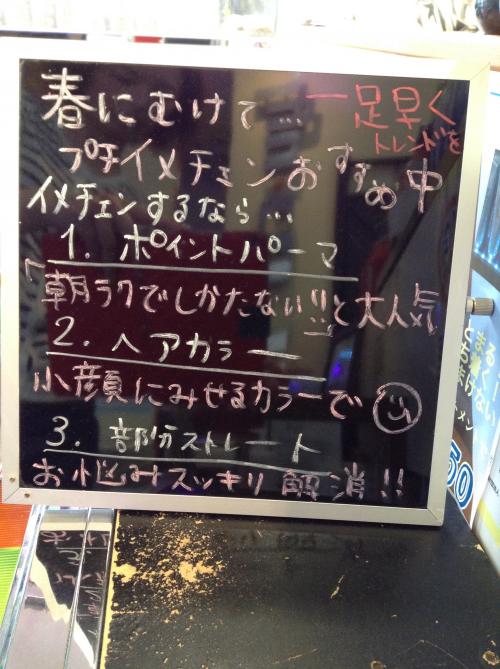 春にむけて… 一足早く
トレンドを
プチイメチェンおすすめ中
イメチェンするなら…
1. ポイントパーマ
朝ラクでしかたない!!と大人気
2. ヘアカラー
小顔にみせるカラーで
3. 部分ストレート
お悩みスッキリ解消!!
50